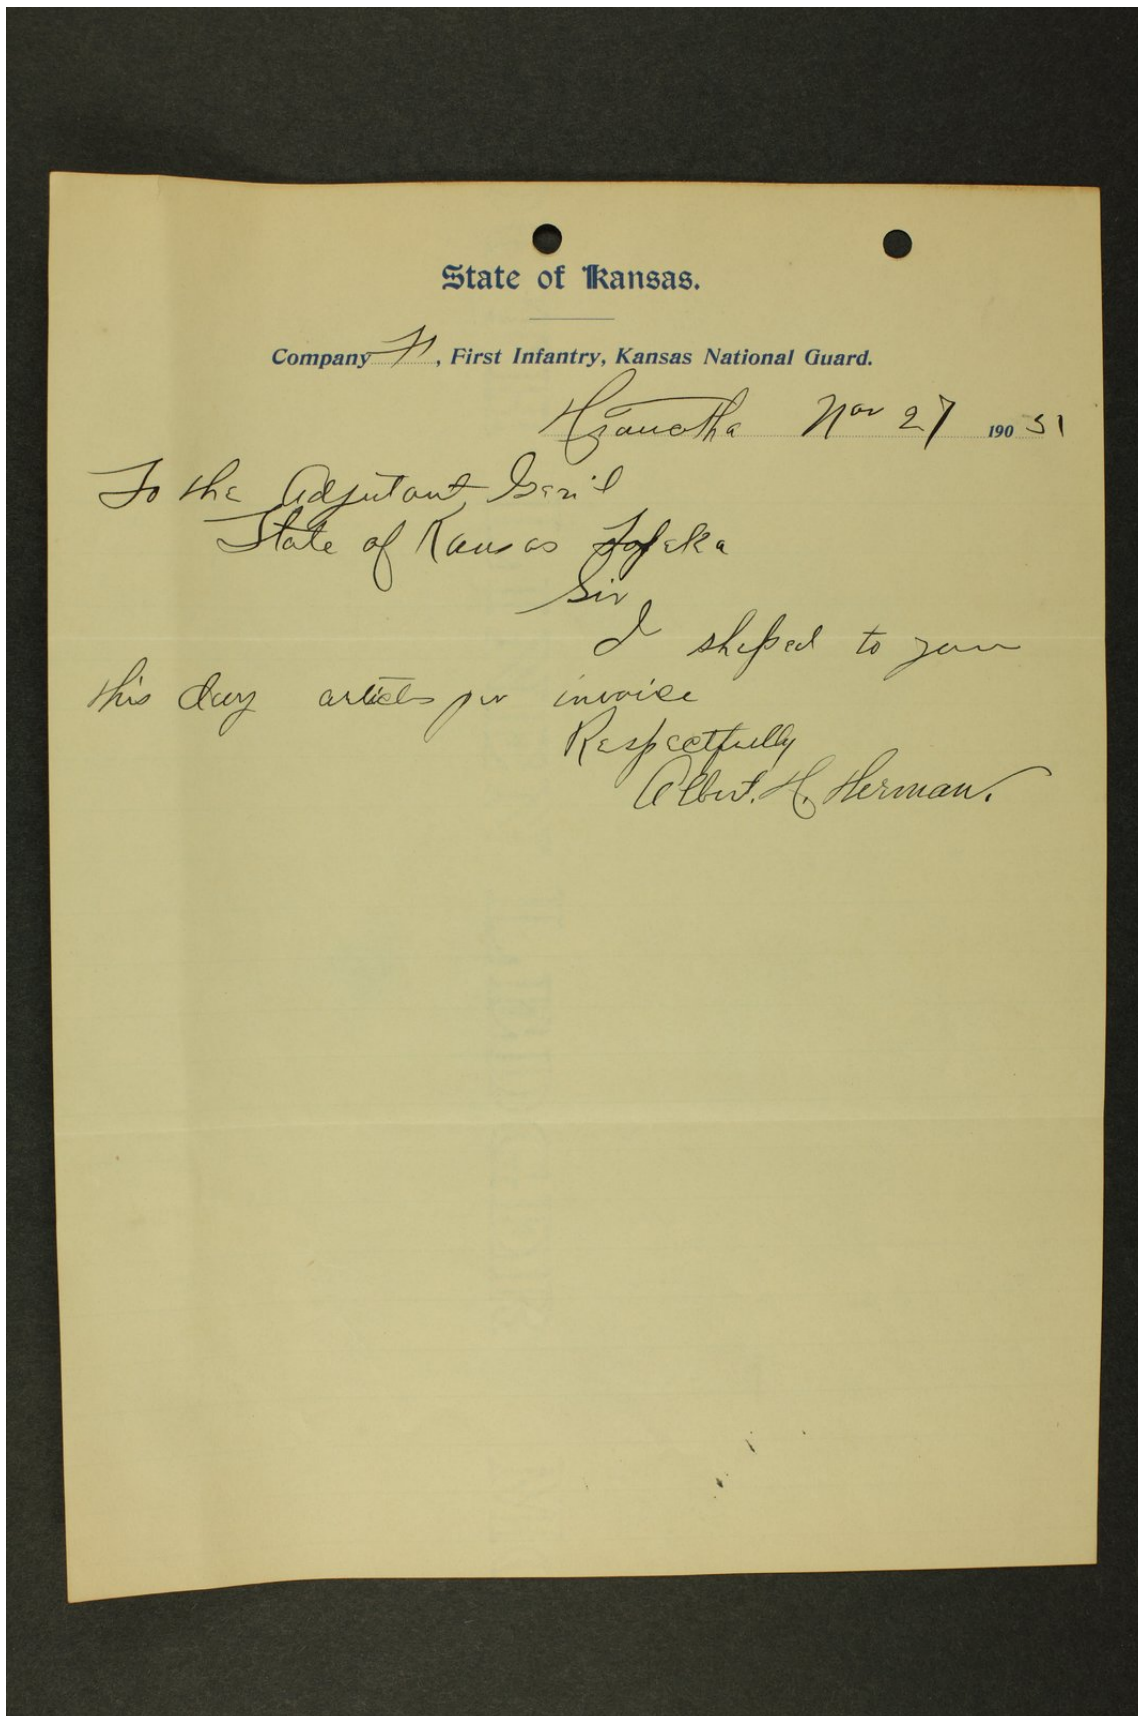 State of Kansas.
Company F, First Infantry, Kansas National Guard.
Hiawatha Nov 27 190
To the Adjutant Gen'l
State of Kansas Topeka
Sir
I shiped to you
this day articles per invoice
Respectfully
Albert. H. Herman.